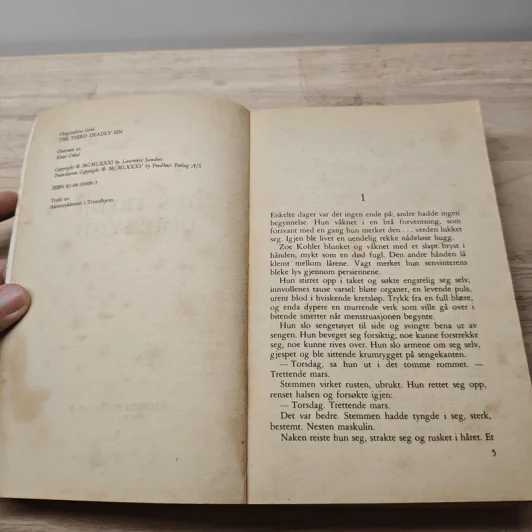 Originalens tittel
THE THIRD DEADLY SIN
Oversatt av
Copyright © MCMLXXXI by Lawrence Sanders
Translation Copyright © MCMLXXXV by Fredhøis Forlag A/S
ISBN 82-04-
Trykt av
Aktietrykkeriet i Trondhjem
1
Enkelte dager var det ingen ende på; andre hadde ingen
begynnelse. Hun våknet i en brå forventning, som
forsvant med en gang hun merket den . . . verden lukket
seg. Igjen ble livet en uendelig rekke nådeløse hugg.
Zoe Kohler blunket og våknet med et slapt bryst i
hånden, myk som en død fugl. Den andre hånden lå
klemt mellom lårene. Vagt merket hun vensinterens
bleke lys gjennom persiennene.
Hun stirret opp i taket og søkte engstelig seg selv,
innvollenes tause varsel: bløte organer, en levende puls,
urent blod i hviskende kretsløp. Trykk fra en full blære,
og enda dypere en murrende verk som ville gå over i
bitende smerter når menstruasjonen begynte.
Hun slo sengetøyet til side og svingte bena ut av
sengen. Hun beveget seg forsiktig; noe kunne forstrekke
seg, noe kunne rives over. Hun slo armene om seg selv,
gjespet og ble sittende krumrygget på sengekanten.
— Torsdag, sa hun ut i det tomme rommet. —
Trettende mars.
Stemmen virket rusten, ubrukt. Hun rettet seg opp,
renset halsen og forsøkte igjen:
— Torsdag. Trettende mars.
Det var bedre. Stemmen hadde tyngde i seg, sterk,
bestemt. Nesten maskulin.
Naken reiste hun seg, strakte seg og rusket i håret. Et
5